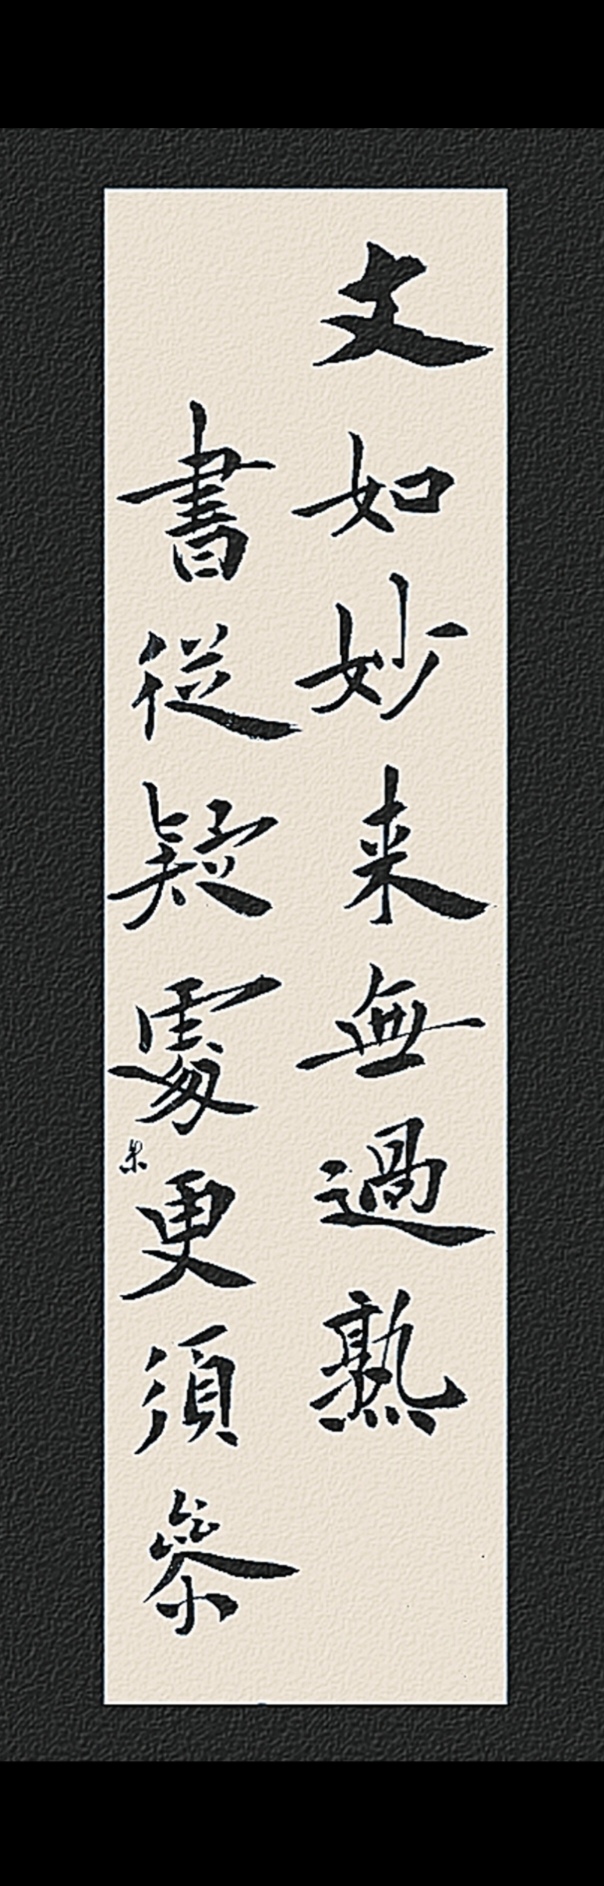 文如妙来無過熟
書從疑處更須參